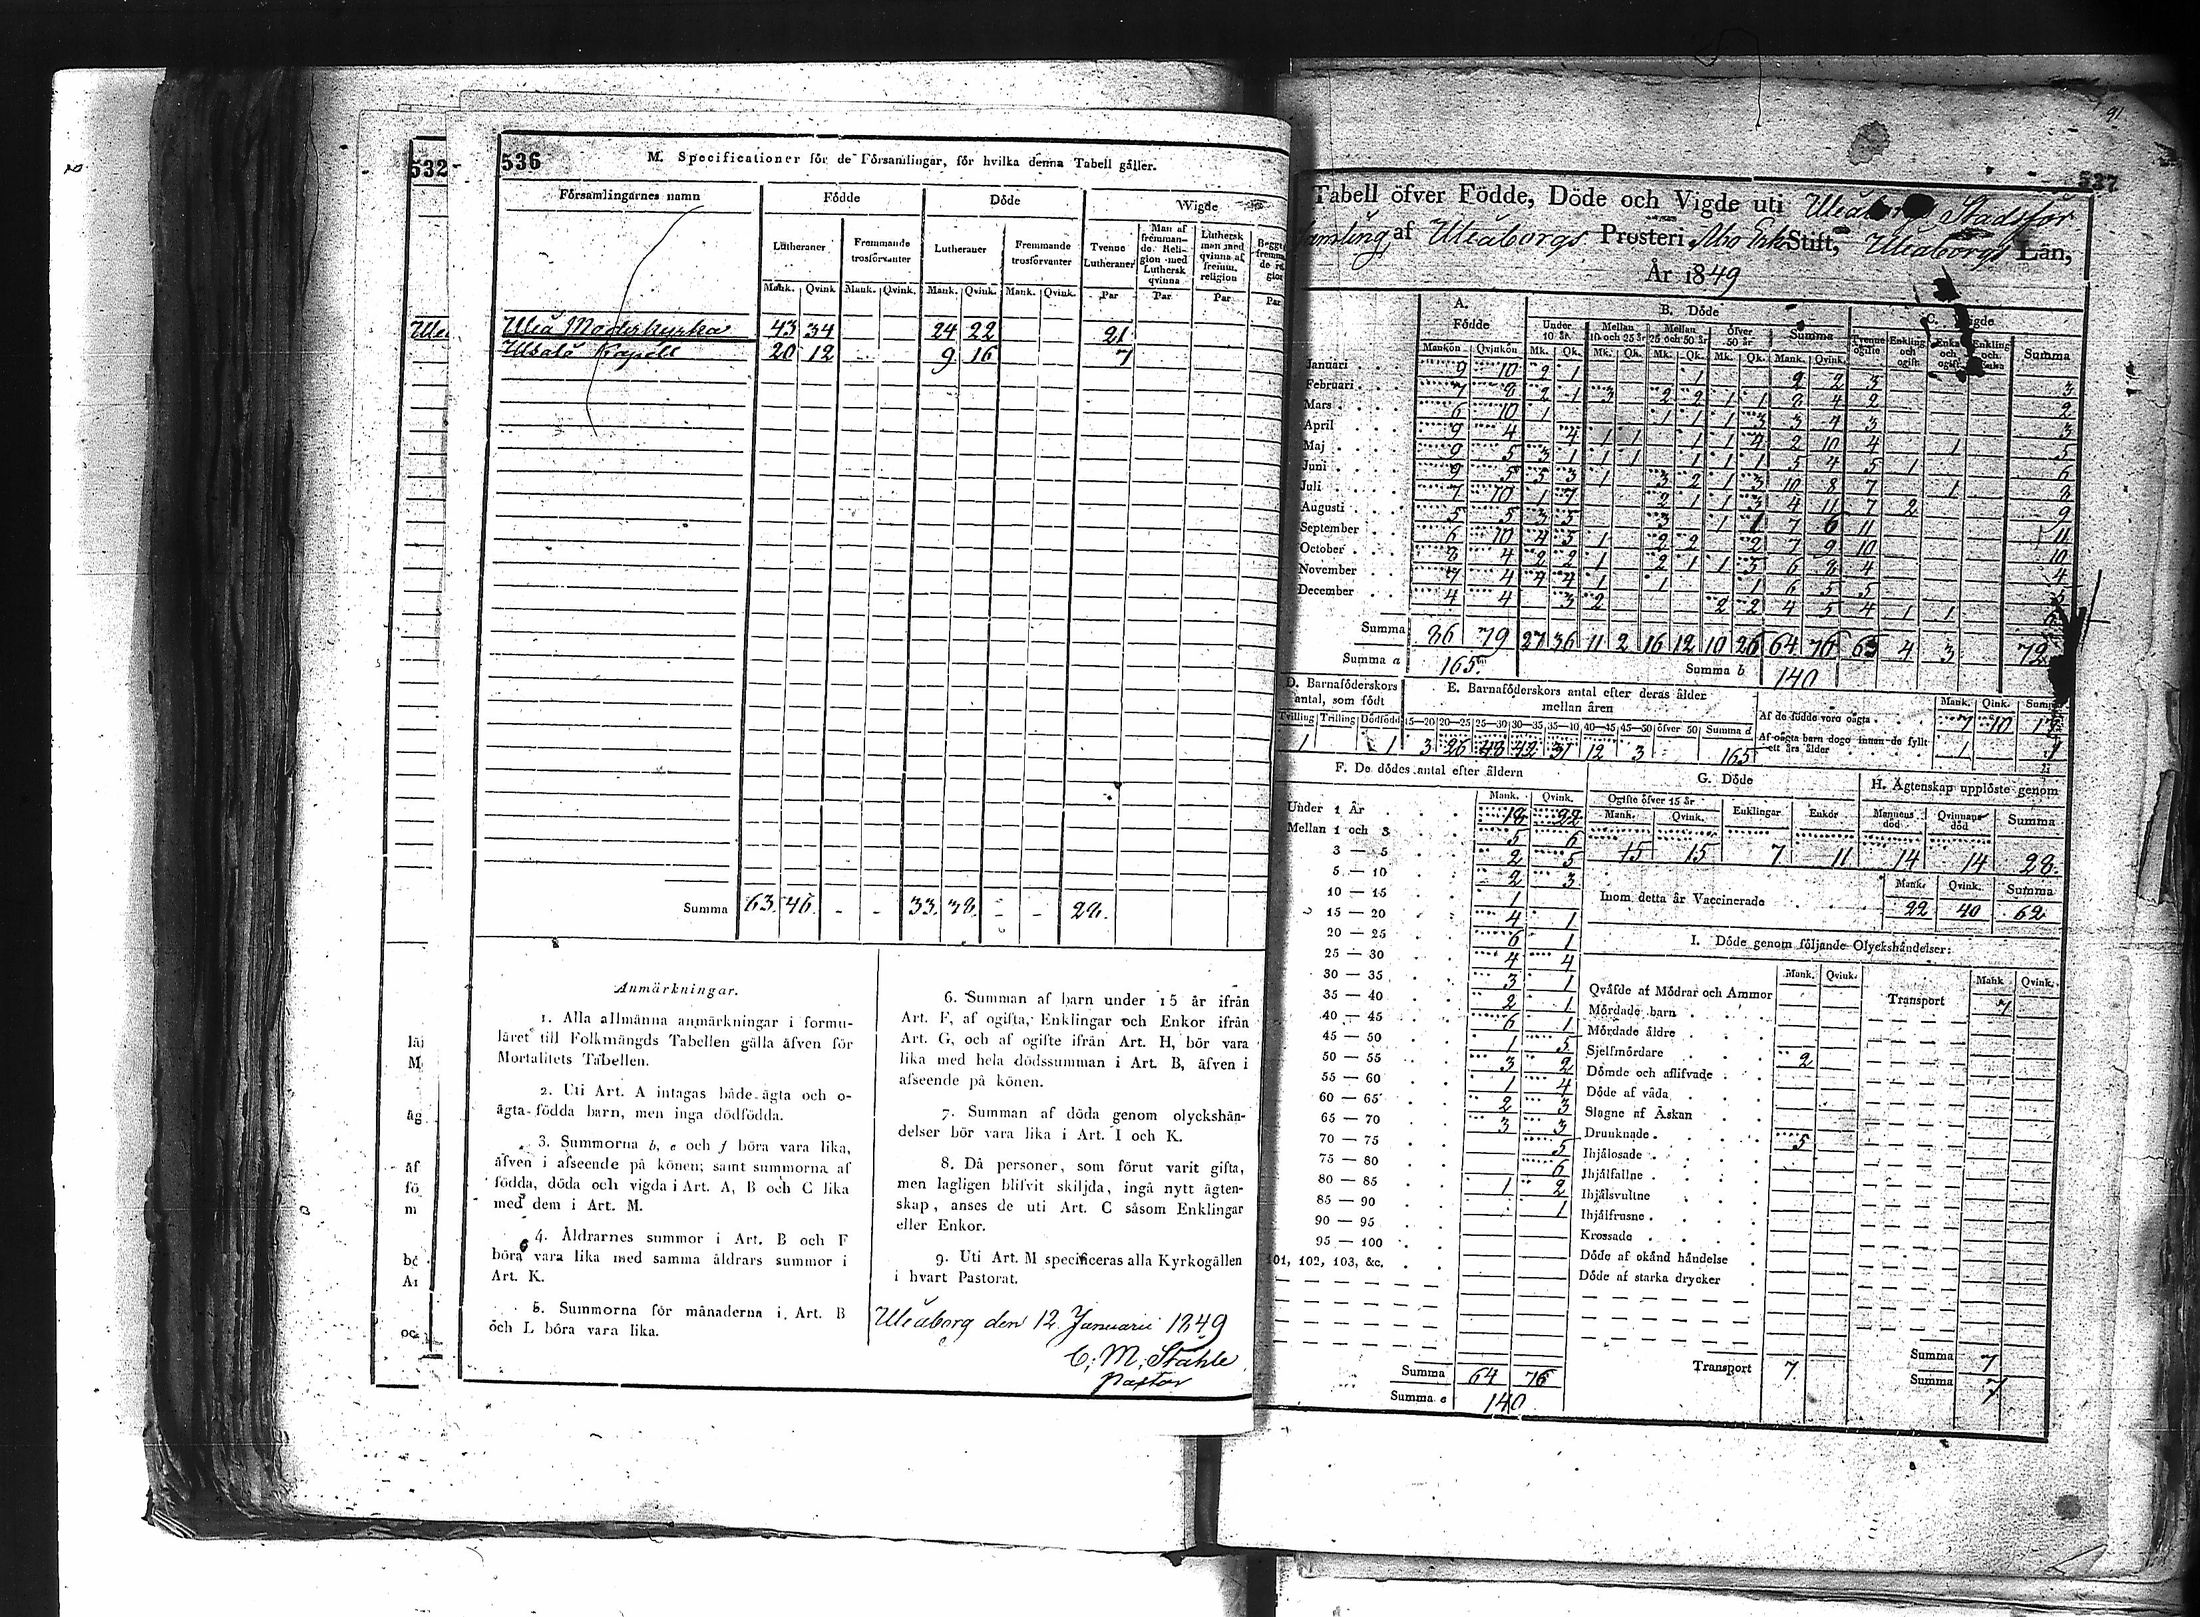 532
536
M. Specificationer för de Församlingar, för hvilka denna Tabell gäller.
Församlingarnes namn
Födde
Döde
Wigde
Lutheraner
Fremmande trosförvanter
Lutheraner
Fremmande trosförvanter
Tvenne Lutheraner
Man af fremmande Religion med Luthersk qvinna
Luthersk man med qvinna af fremm. religion
Mank. Qvink. Mank. Qvink. Mank. Qvink. Mank. Qvink. Par Par Par Par
Uleå Moderkyrka 43 34 24 22 21
Ulealå Kapell 20 12 9 16 7
Summa 63. 46. - - 33. 38. - - 28.
Anmärkningar.
1. Alla allmänna anmärkningar i formu-
läret till Folkmängds Tabellen gälla äfven för
Mortalitets Tabellen.
2. Uti Art. A intagas både ägta och o-
ägta födda barn, men inga dödfödda.
3. Summorna b, e och f böra vara lika,
äfven i afseende på könen; samt summorna af
födda, döda och vigda i Art. A, B och C lika
med dem i Art. M.
4. Åldrarnes summor i Art. B och F
böra vara lika med samma åldrars summor i
Art. K.
5. Summorna för månaderna i Art. B
och L böra vara lika.
6. Summan af barn under 15 år ifrån
Art. F, af ogifta, Enklingar och Enkor ifrån
Art. G, och af ogifte ifrån Art. H, bör vara
lika med hela dödssumman i Art. B, äfven i
afseende på könen.
7. Summan af döda genom olyckshän-
delser bör vara lika i Art. I och K.
8. Då personer, som förut varit gifta,
men lagligen blifvit skiljda, ingå nytt ägten-
skap, anses de uti Art. C såsom Enklingar
eller Enkor.
9. Uti Art. M specificeras alla Kyrkogällen
i hvart Pastorat.
Uleåborg den 12 Januarii 1849
C. M. Stahle
Pastor
537
Tabell öfver Födde, Döde och Vigde uti Uleåborgs Stadsför
samling af Uleåborgs Prosteri Åbo Erke Stift, Uleåborgs Län,
År 1849
A. Födde
B. Döde
C. Vigde
Under 10 år. Mellan 10 och 25 år Mellan 25 och 50 år öfver 50 år Summa
Tvenne ogifte Enkling och ogift Enka och ogift Enkling och Enka Summa
Mankön Qvinkön Mk. Qk. Mk. Qk. Mk. Qk. Mk. Qk. Mank. Qvink.
Januari 9 10 2 1 1 2 2 3 3
Februari 7 8 2 1 3 2 2 1 1 8 4 2 2
Mars 6 10 1 1 1 1 3 3 4 3 3
April 9 4 4 1 1 1 1 4 2 10 4 1 5
Maj 9 5 3 1 1 1 1 1 1 5 4 5 1 6
Juni 9 5 5 3 1 3 2 1 3 10 8 7 1 8
Juli 7 10 1 7 2 1 1 3 4 11 7 2 9
Augusti 5 5 3 5 3 1 1 7 6 11 11
September 6 10 4 5 1 2 2 2 7 9 10 10
October 8 4 2 2 1 2 1 1 3 6 8 4 4
November 7 4 4 4 1 1 1 6 5 5 5
December 4 4 3 2 2 2 4 5 4 1 1 6
Summa 86 79 27 36 11 2 16 12 10 26 64 76 65 4 3 72
Summa a 165 Summa b 140
D. Barnaföderskors antal, som födt
E. Barnaföderskors antal efter deras ålder mellan åren
Tvilling Trilling Dödfödd 15—20 20—25 25—30 30—35 35—40 40—45 45—50 öfver 50 Summa d
1 1 3 26 48 42 31 12 3 165
Mank. Qink. Summa
Af de födde voro oägta 7 10 17
Af oägta barn dogo innan de fyllt ett års ålder 1
F. De dödes antal efter åldern
Mank. Qvink.
Under 1 År 18 22
Mellan 1 och 3 5 6
3 — 5 2 5
5 — 10 2 3
10 — 15 1
15 — 20 4 1
20 — 25 6 1
25 — 30 4 4
30 — 35 3 1
35 — 40 2 1
40 — 45 6 1
45 — 50 1 5
50 — 55 3 2
55 — 60 1 4
60 — 65 2 3
65 — 70 3 3
70 — 75 5
75 — 80 6
80 — 85 1 2
85 — 90 1
90 — 95
95 — 100
101, 102, 103, &c.
Summa 64 76
Summa e 140
G. Döde
Ogifte öfver 15 år Enklingar Enkor
Mank. Qvink.
15 15 7 11
H. Ägtenskap upplöste genom
Mannens död Qvinnans död Summa
14 14 28
Mank. Qvink. Summa
Inom detta år Vaccinerade 22 40 62
I. Döde genom följande Olyckshändelser:
Mank. Qvink. Mank Qvink.
Qväfde af Mödrar och Ammor Transport 7
Mördade barn
Mördade äldre
Sjelfmördare 2
Dömde och aflifvade
Döde af våda
Slagne af Åskan
Drunknade 5
Ihjälosade
Ihjälfallne
Ihjälsvultne
Ihjälfrusne
Krossade
Döde af okänd händelse
Döde af starka drycker
Transport 7
Summa 7
Summa 7